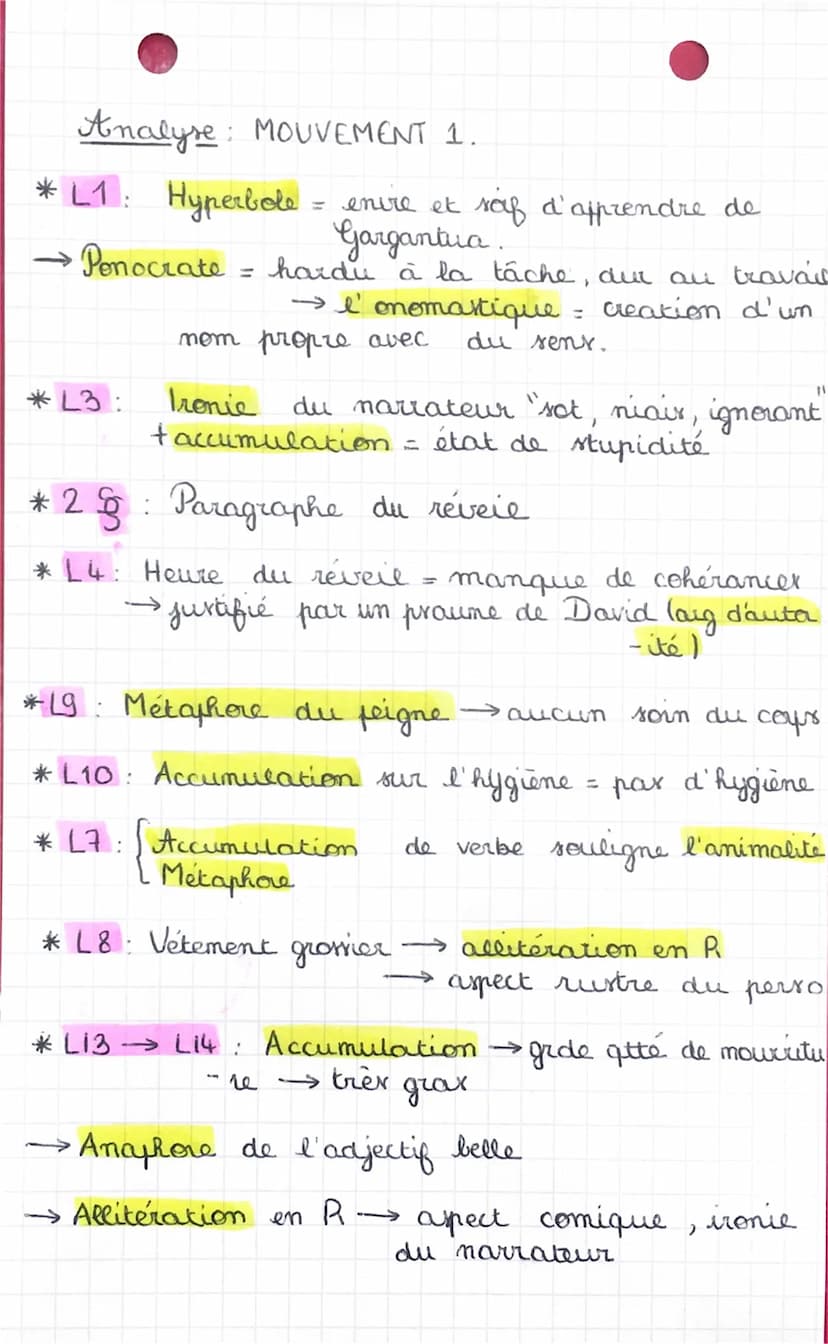 Analyse : MOUVEMENT 1.
* L1 : Hyperbole = envie et soif d'apprendre de
Gargantua.
→ Ponocrate = hardu à la tâche, dur au travail
→ l'onomastique = creation d'un
nom propre avec du sens.
* L3 : Ironie du narrateur "sot, niais, ignorant"
+ accumulation = état de stupidité
* 2 § : Paragraphe du réveil
* L4 : Heure du réveil = manque de cohérances
→ justifié par un psaume de David (arg d'auto
-ité)
* L9 : Métaphore du peigne → aucun soin du corps
* L10 : Accumulation sur l'hygiène = pas d'hygiène
* L7 : { Accumulation de verbe souligne l'animalité
Métaphore
* L8 : Vêtement grossier → allitération en R
→ aspect rustre du perso
* L13 → L14 : Accumulation → grde qtté de nourritu
-re → très gras
→ Anaphore de l'adjectif belle
→ Allitération en R → aspect comique, ironie
du narrateur